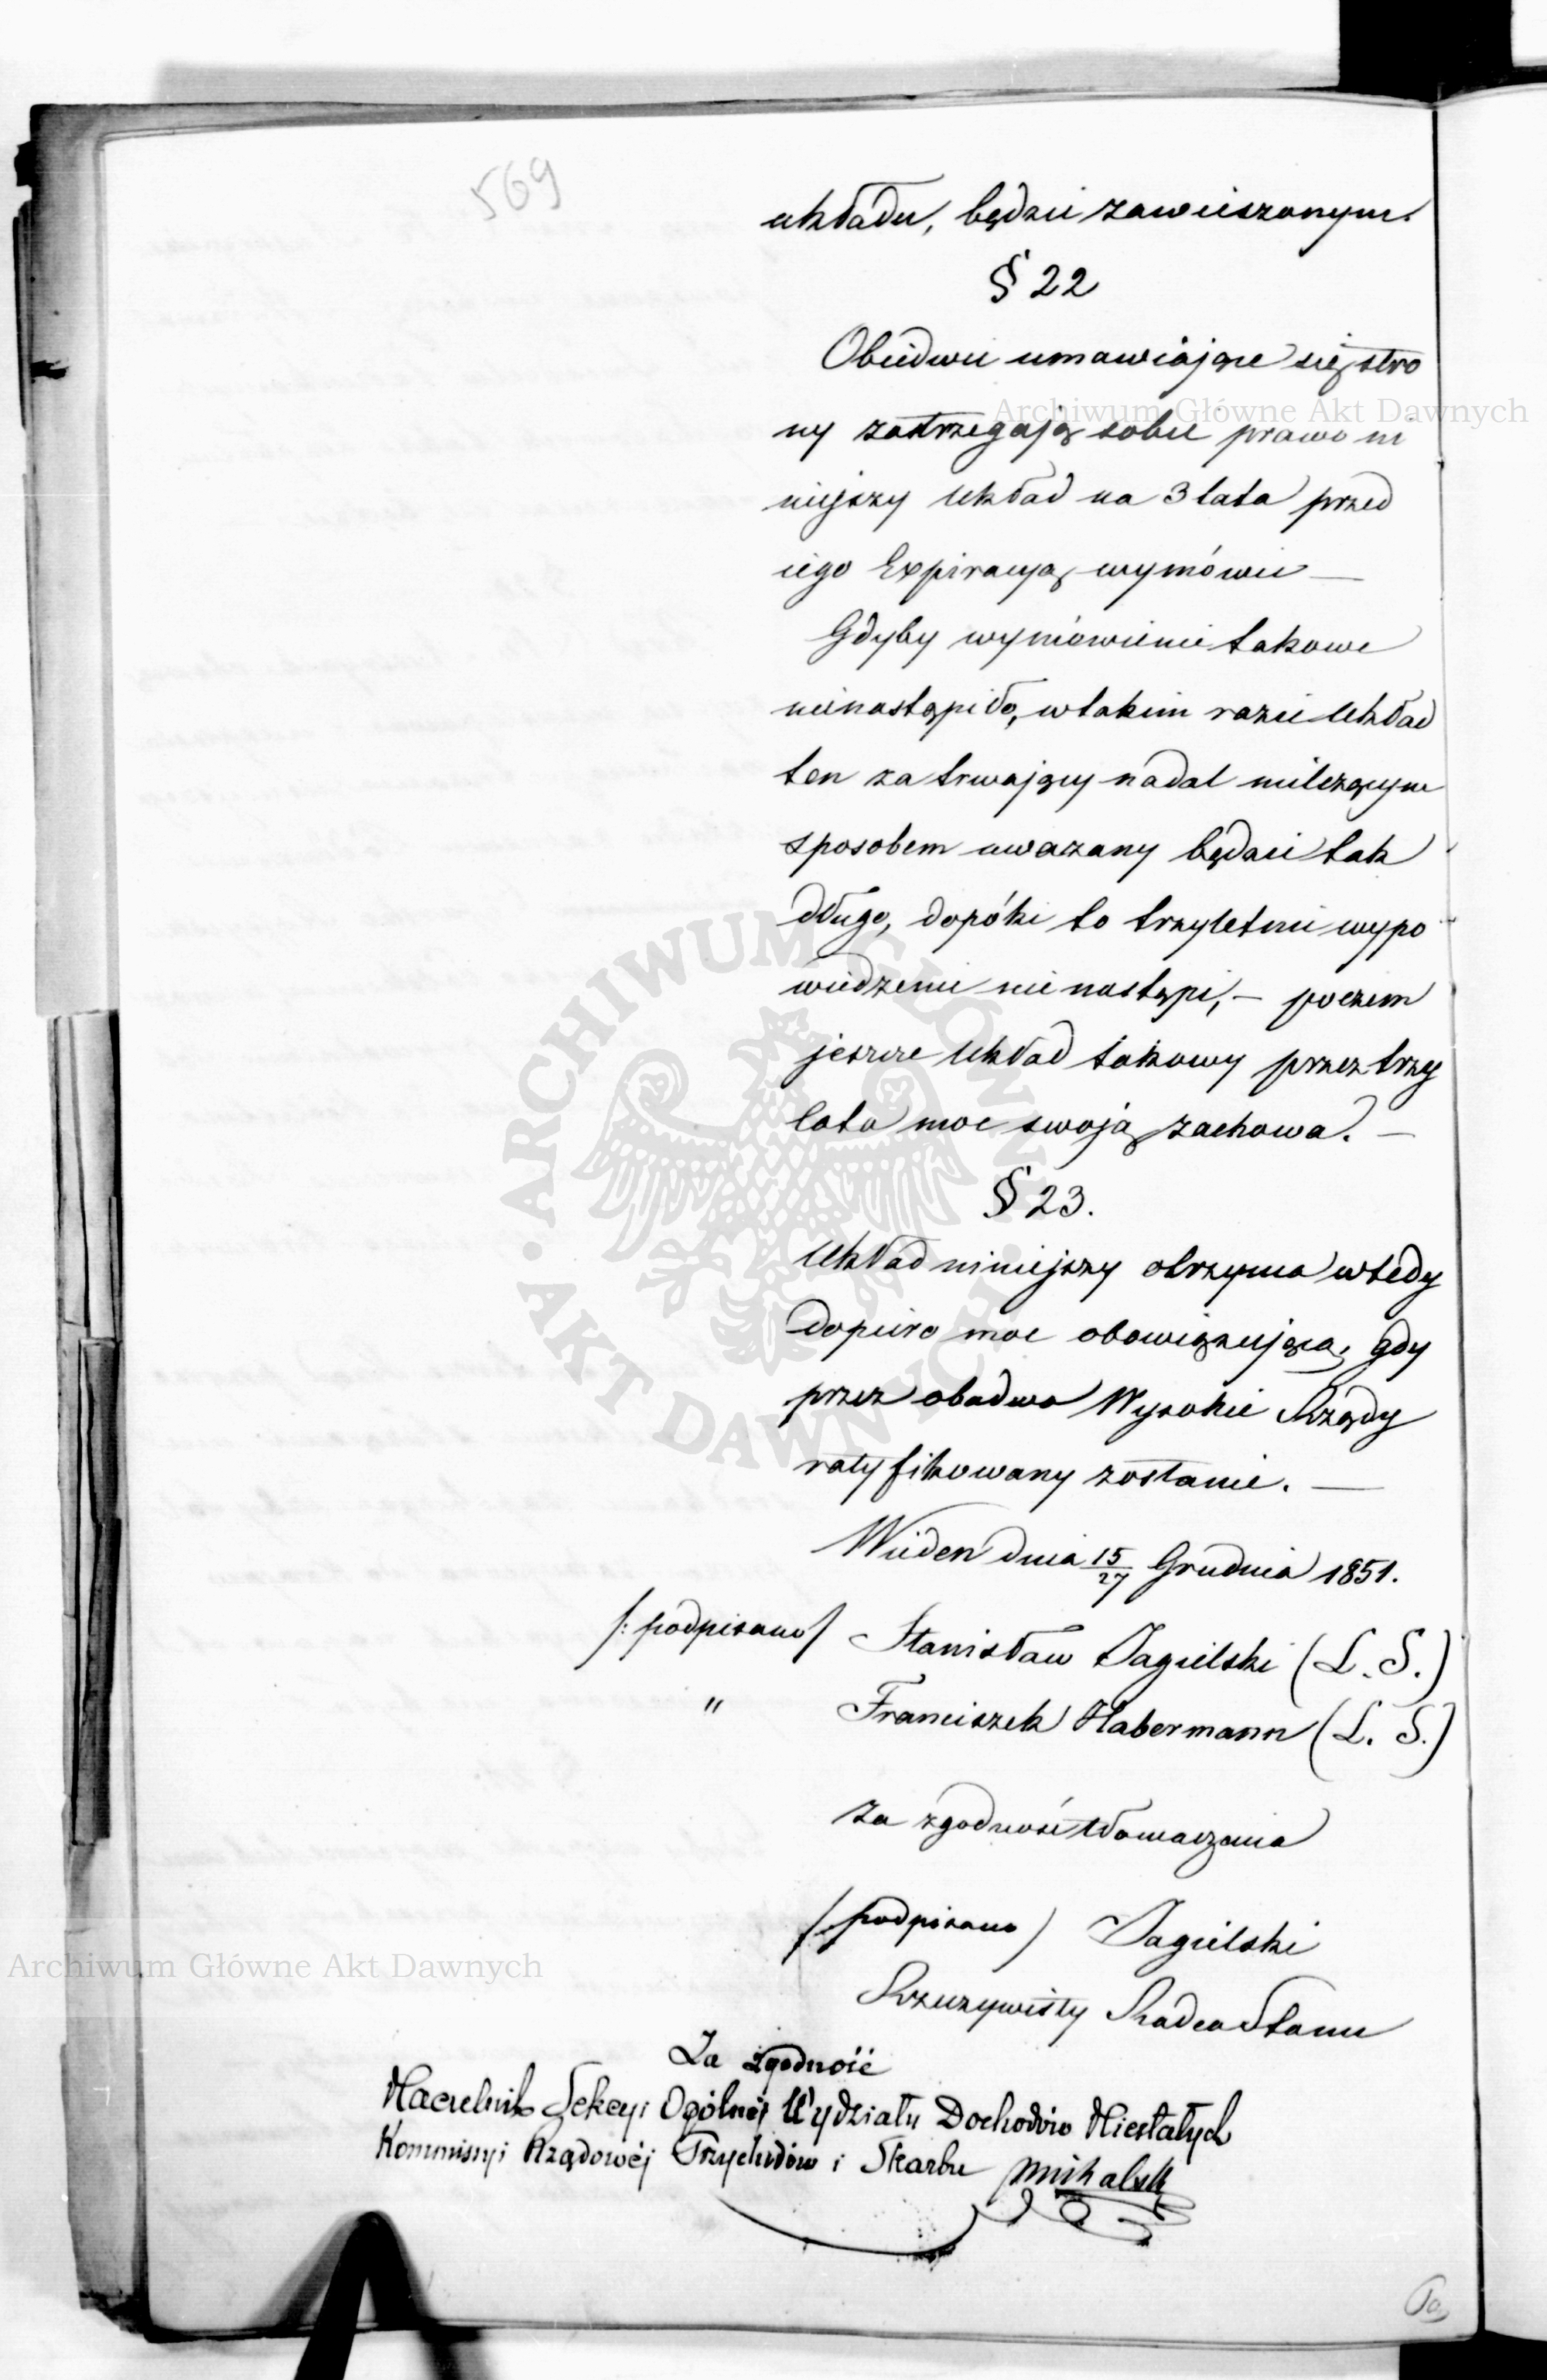 569
układu, będzie zawieszonym.
§ 22
Obiedwie umawiające się stro
ny zastrzegają sobie prawo ni
niejszy Układ na 3 lata przed
iego Expiracyą wymówić —
Gdyby wymówienie takowe
nienastąpiło, wtakim razie Układ
ten za trwający nadal milczącym
sposobem uważany będzie tak
długo, dopóki to trzyletnie wypo
wiedzenie nie nastąpi, — poczem
jeszcze Układ takowy przez trzy
lata moc swoją zachowa. —
§ 23.
Układ niniejszy otrzyma wtedy
dopiero moc obowiązującą, gdy
przez obadwa Wysokie Rządy
ratyfikowany zostanie. —
Wiedeń dnia 15/27 Grudnia 1851.
/: podpisano / Stanisław Jagielski (L. S.)
" Franciszek Habermann (L. S.)
Za zgodność tłomaczenia
/: podpisano / Jagielski
Rzeczywisty Radca Stanu
Za zgodność
Naczelnik Sekcyi Ogólnéj Wydziału Dochodów Niestałych
Kommissyi Rządowéj Przychodów i Skarbu
Archiwum Główne Akt Dawnych
ARCHIWUM GŁÓWNE AKT DAWNYCH
Archiwum Główne Akt Dawnych